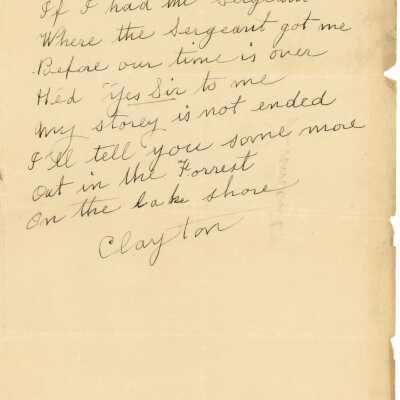 If I had the Sergeant
Where the Sergeant got me
Before our time is over
He'd "Yes Sir to me
My storey is not ended
I'll tell you some more
Out in the Forrest
On the Lake shore
Clayton